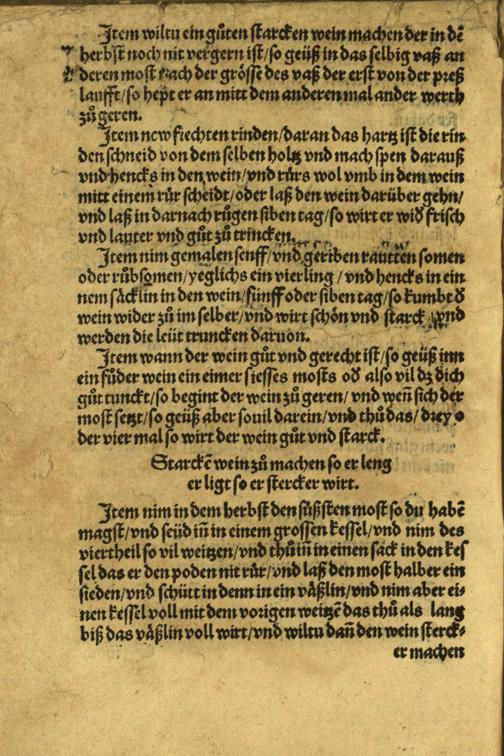 Item wiltu ein gůten starcken wein machen der in dē
herbst noch nit vergern ist/so geüß in das selbig vaß an
deren most nach der grösse des vaß der erst von der preß
laufft/so hept er an mitt dem anderen mal ander werth
zů geren.
Item new fiechten rinden/daran das hartz ist die rin
den schneid von dem selben holtz vnd mach spen darauß
vnd hencks in den wein/vnd rürs wol vmb in dem wein
mitt einem rür scheidt/oder laß den wein darüber gehn/
vnd laß in darnach rügen siben tag/so wirt er wið frisch
vnd lauter vnd gůt zů trincken.
Item nim gemalen senff/vnd geriben rautten somen
oder rübsomen/yeglichs ein vierling/vnd hencks in ein
nem säcklin in den wein/fünff oder siben tag/so kumbt ð
wein wider zů im selber/vnd wirt schön vnd starck vnd
werden die leüt truncken daruon.
Item wann der wein gůt vnd gerecht ist/so geüß inn
ein fůder wein ein eimer siesses mosts oð also vil dz dich
gůt tunckt/so begint der wein zů geren/vnd weñ sich der
most setzt/so geüß aber souil darein/vnd thů das/drey o
der vier mal so wirt der wein gůt vnd starck.
Starckē wein zů machen so er leng
er ligt so er stercker wirt.
Item nim in dem herbst den süßsten most so du habē
magst/vnd seüd iñ in einem grossen kessel/vnd nim des
viertheil so vil weitzen/vnd thů iñ in einen sack in den kes
sel das er den poden nit rür/vnd laß den most halber ein
sieden/vnd schütt in denn in ein väßlin/vnd nim aber ei-
nen kessel voll mit dem vorigen weitzē das thů als lang
biß das väßlin voll wirt/vnd wiltu dañ den wein sterck-
er machen